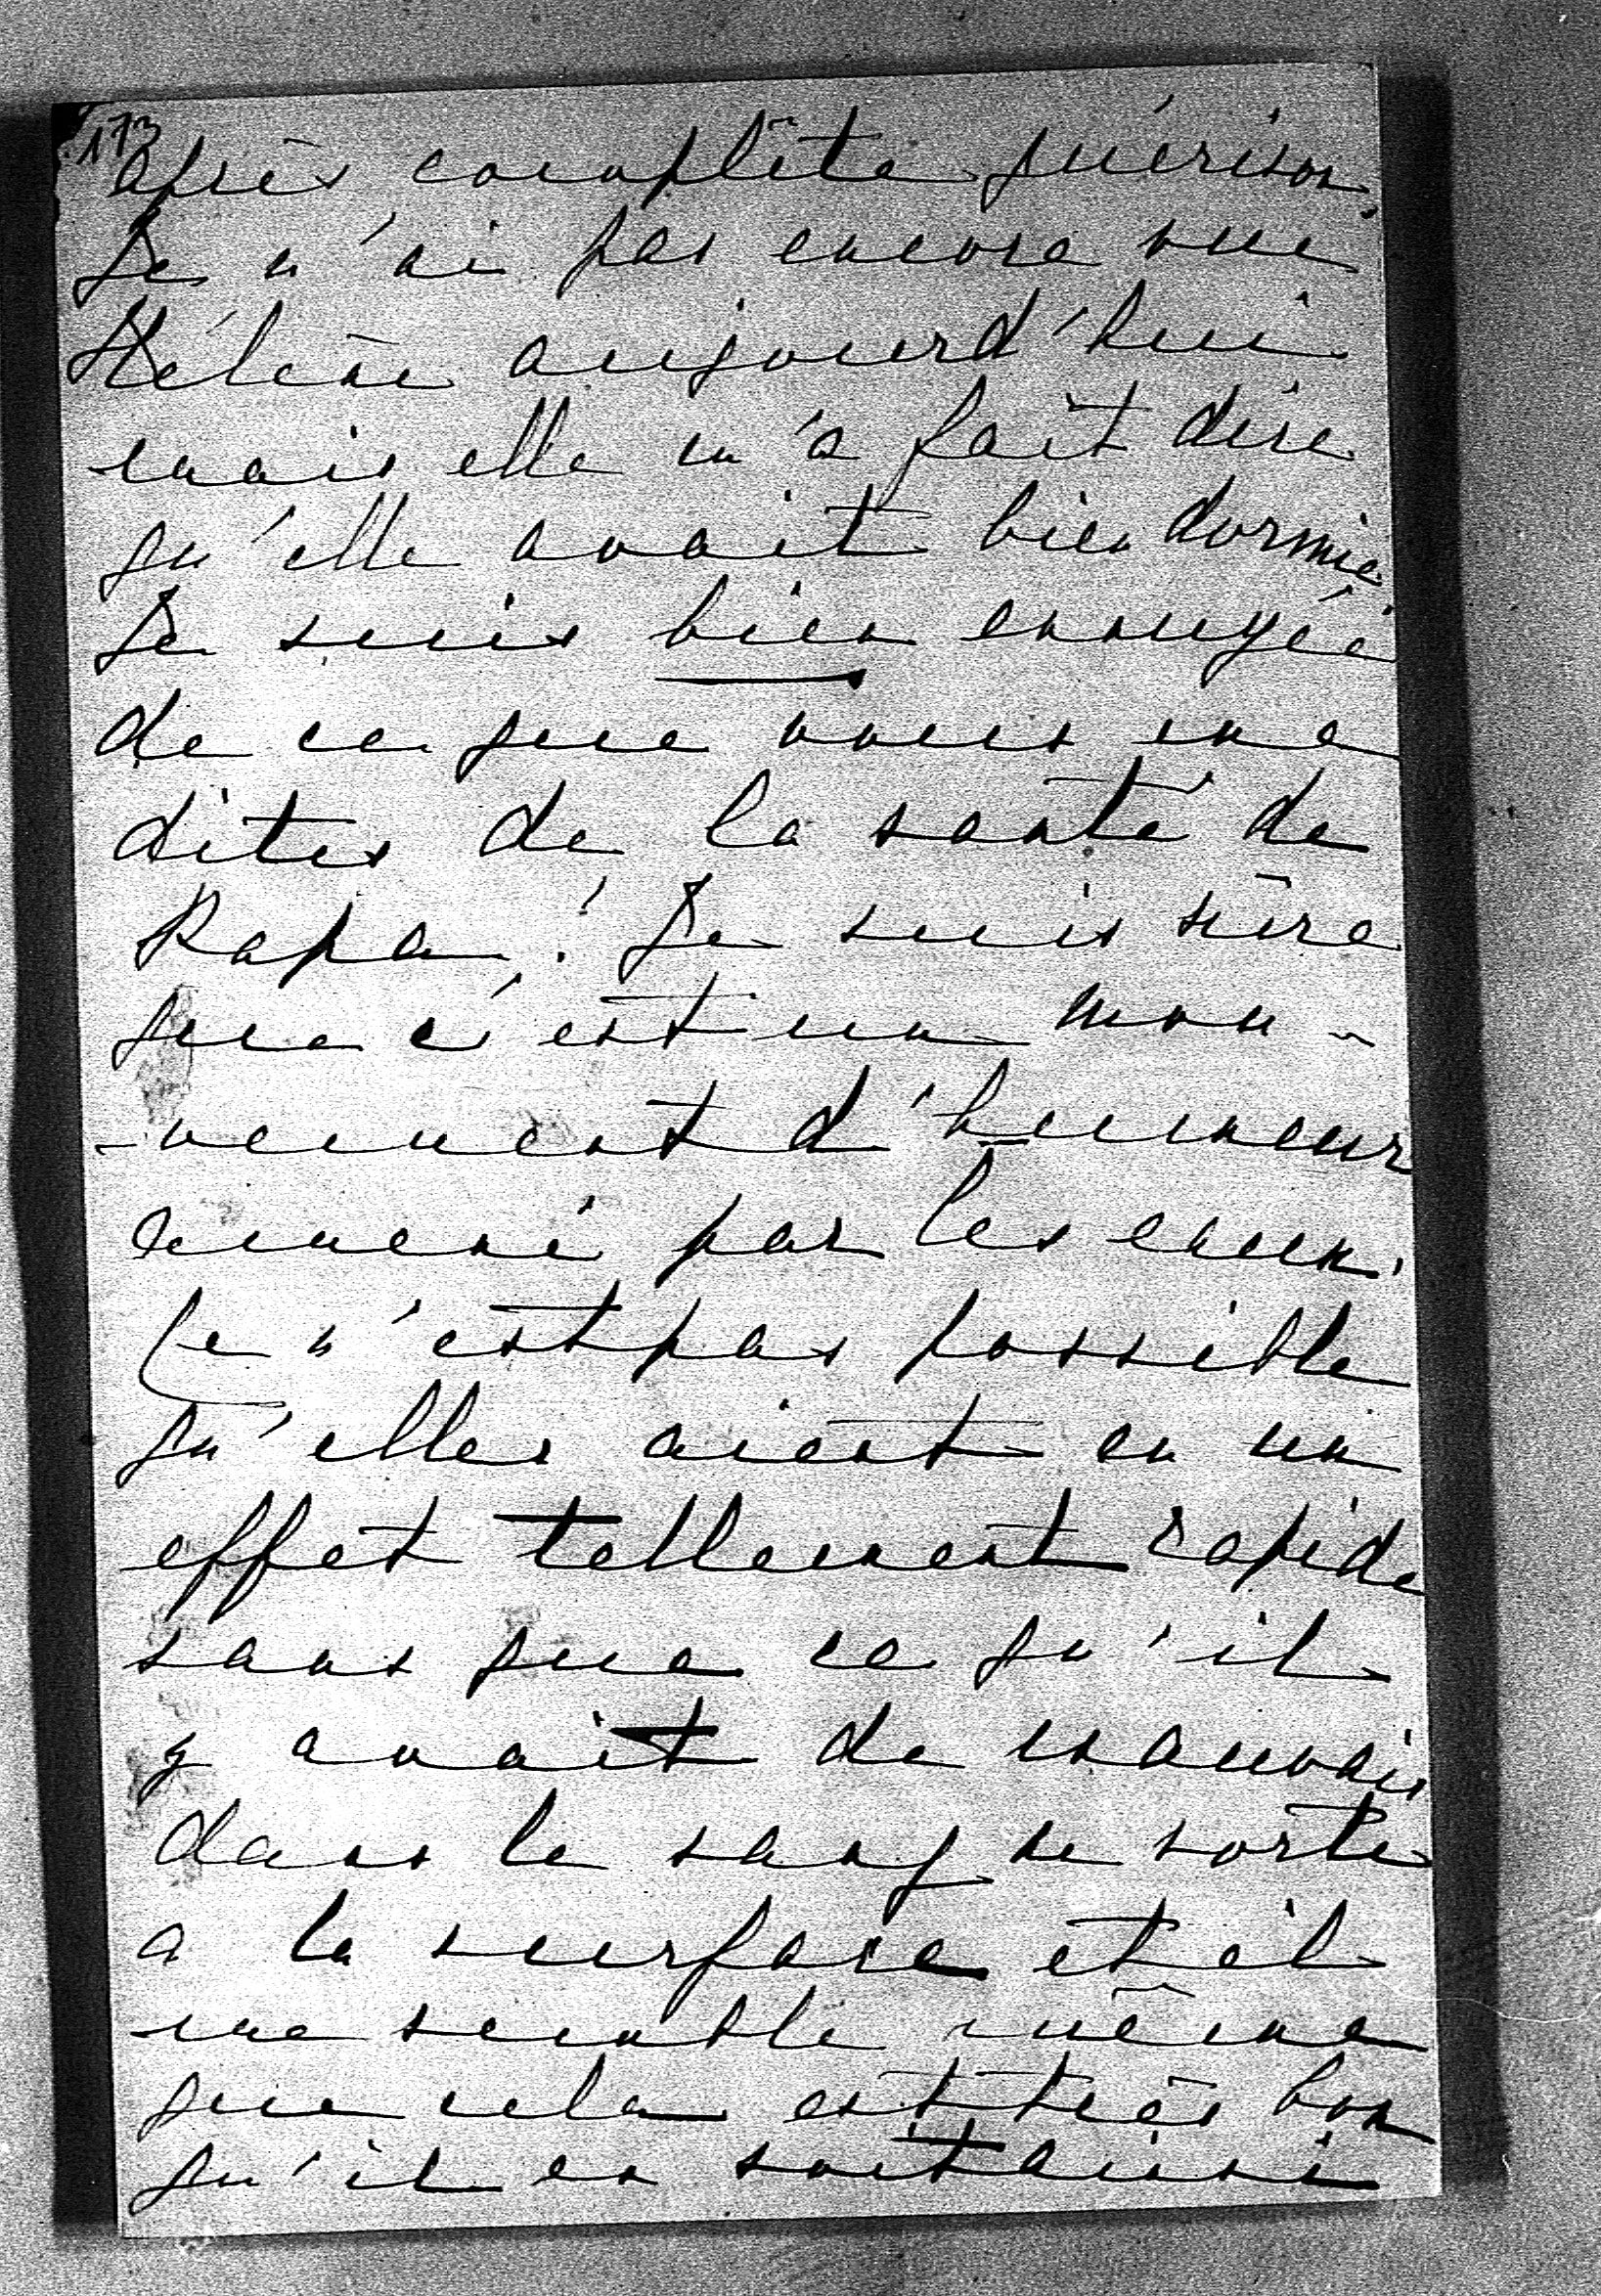 173
après complête guérison.
Je n'ai pas encore vue
Hélène aujourd'hui
mais elle m'a fait dire
qu'elle avait bien dormie.
Je suis bien ennuyée
de ce que vous me
dites de la santé de
Papa! Je suis sûre
que c'est un mou-
-vement d'humeur
amené par les eaux.
Ce n'est pas possible
qu'elles aient eu un
effet tellement rapide
sans que ce qu'il
y avait de mauvais
dans le sang ne sorte
a la surface et il
me semble même
que cela est très bon
qu'il en soit ainsi